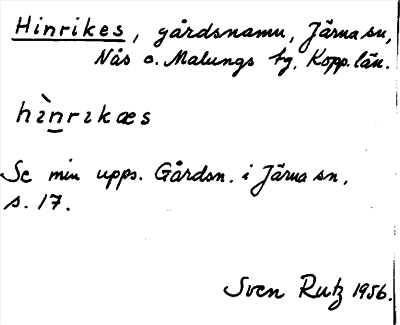 Hinrikes, gårdsnamn, Järna sn,
Nås o. Malungs tg, Kopp. län.
hìnrıkæs
Se min upps. Gårdsn. i Järna sn,
s. 17.
Sven Rutz 1956.